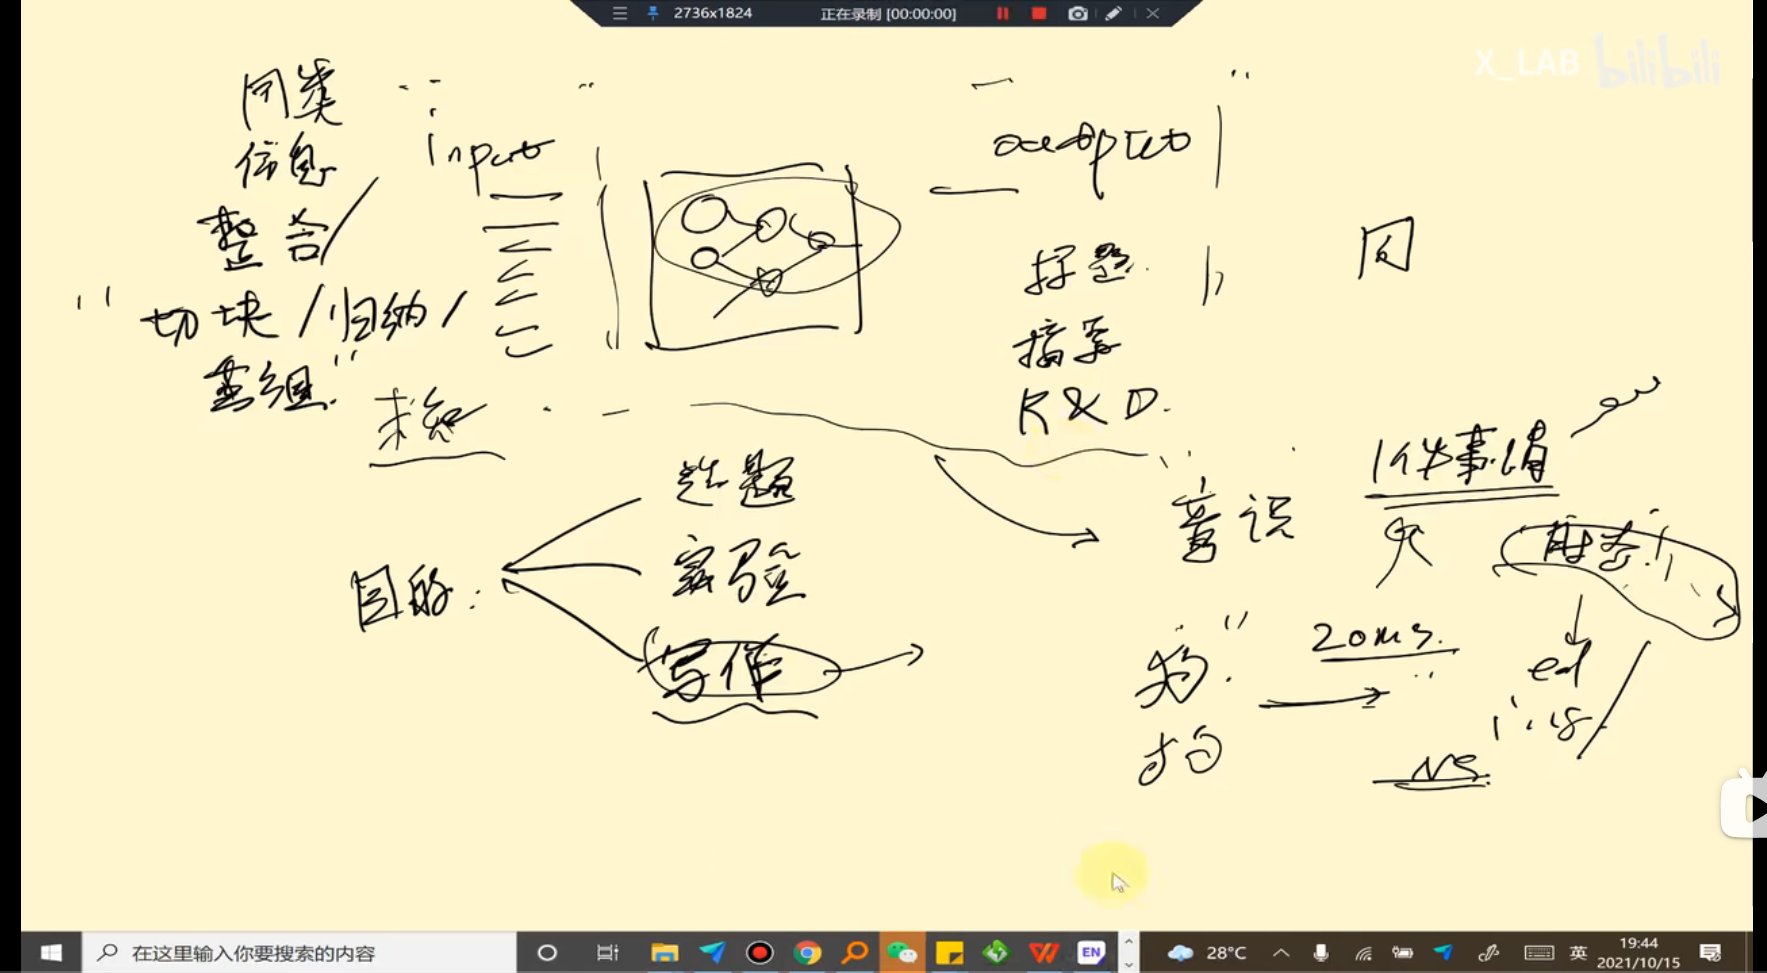 2736x1824 正在录制 [00:00:00]
X_LAB bilibili
同类
信息
整合/
"切块/归纳/
重组"
input
output
标题
摘要
R & D.
同
未知
目的:
选题
实验
写作
意识
1件事情
时态
20ms.
ed
的
NS
在这里输入你要搜索的内容
EN
28°C
英
19:44
2021/10/15